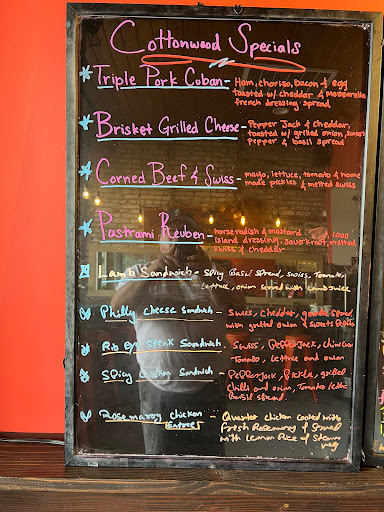 Cottonwood Specials
* Triple Pork Cuban - Ham, chorizo, bacon & egg
toasted w/ cheddar & Mozzarella
french dressing spread
* Brisket Grilled Cheese - Pepper Jack & cheddar,
toasted w/ grilled onion, sweet
pepper & basil spread
* Corned Beef & Swiss - mayo, lettuce, tomato & home
made pickles & melted swiss
* Pastrami Reuben - horseradish & mustard, 1000
island dressing, sauerkraut, melted
swiss & cheddar
Lamb Sandwich - Spicy Basil spread, swiss, Tomato,
lettuce, onion served with Lamb Juice
Philly Cheese Sandwich - Swiss, cheddar, spread
with grilled onion & sweets
Rib Eye Steak Sandwich - Swiss, Pepperjack,
Tomato, lettuce and onion
Spicy Chicken Sandwich - Pepperjack, Pickle, grilled
chilli and onion, Tomato
Basil spread.
Rosemarry chicken - Quarter chicken cooked with
(Entree) fresh Rosemary & Served
with Lemon Rice & Steam
veg